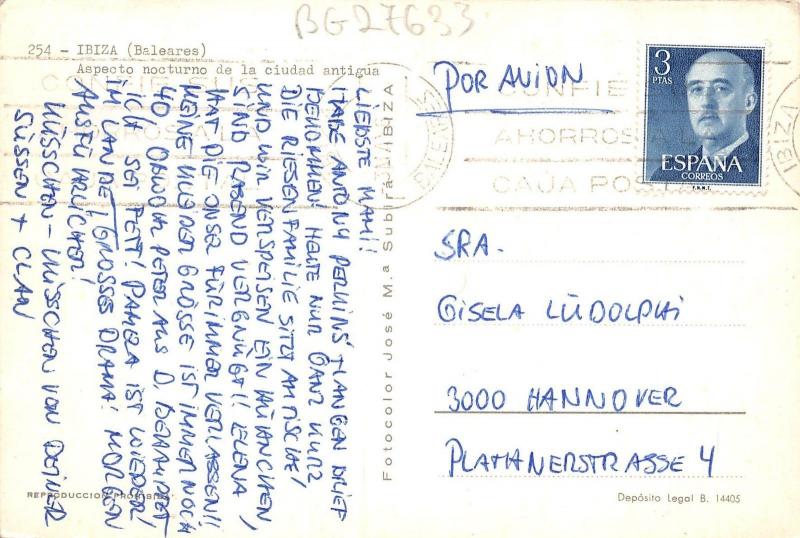 BG27633
254 – IBIZA (Baleares)
Aspecto nocturno de la ciudad antigua
LIEBSTE MAMI!
HABE ANTONY PERKINS' LANGEN BRIEF
BEKOMMEN! HEUTE NUR GANZ KURZ
DIE RIESENFAMILIE SITZT AM TISCHE/
UND WIR VERSPEISEN EIN HÜHNCHEN/
SIND RASEND VERGNÜGT!! ELENA
HAT DIE ONSE FÜR IMMER VERLASSEN!!
MEINE KLEIDERGRÖSSE IST IMMER NOCH
40 OBWOHL PETER AUS D. BEHAUPTET
ICH SEI FETT! PAMELA IST WIEDER
IM LANDE/ GROSSES DRAMA! MORGEN
AUSFÜHRLICHER!
KÜSSCHEN – KÜSSCHEN VON DEINER
SÜSSEN + CLAN
REPRODUCCIÓN PROHIBIDA
Fotocolor José M.a Subirá L. IBIZA
POR AVION
3
PTAS
ESPAÑA
CORREOS
F.N.M.T.
CONFIE
AHORROS A L
CAJA POSTAL
CONFIE SUS
BALEARES
IBIZA
SRA.
GISELA LÜDOLPHI
3000 HANNOVER
PLATHNERSTRASSE 4
Depósito Legal B. 14405